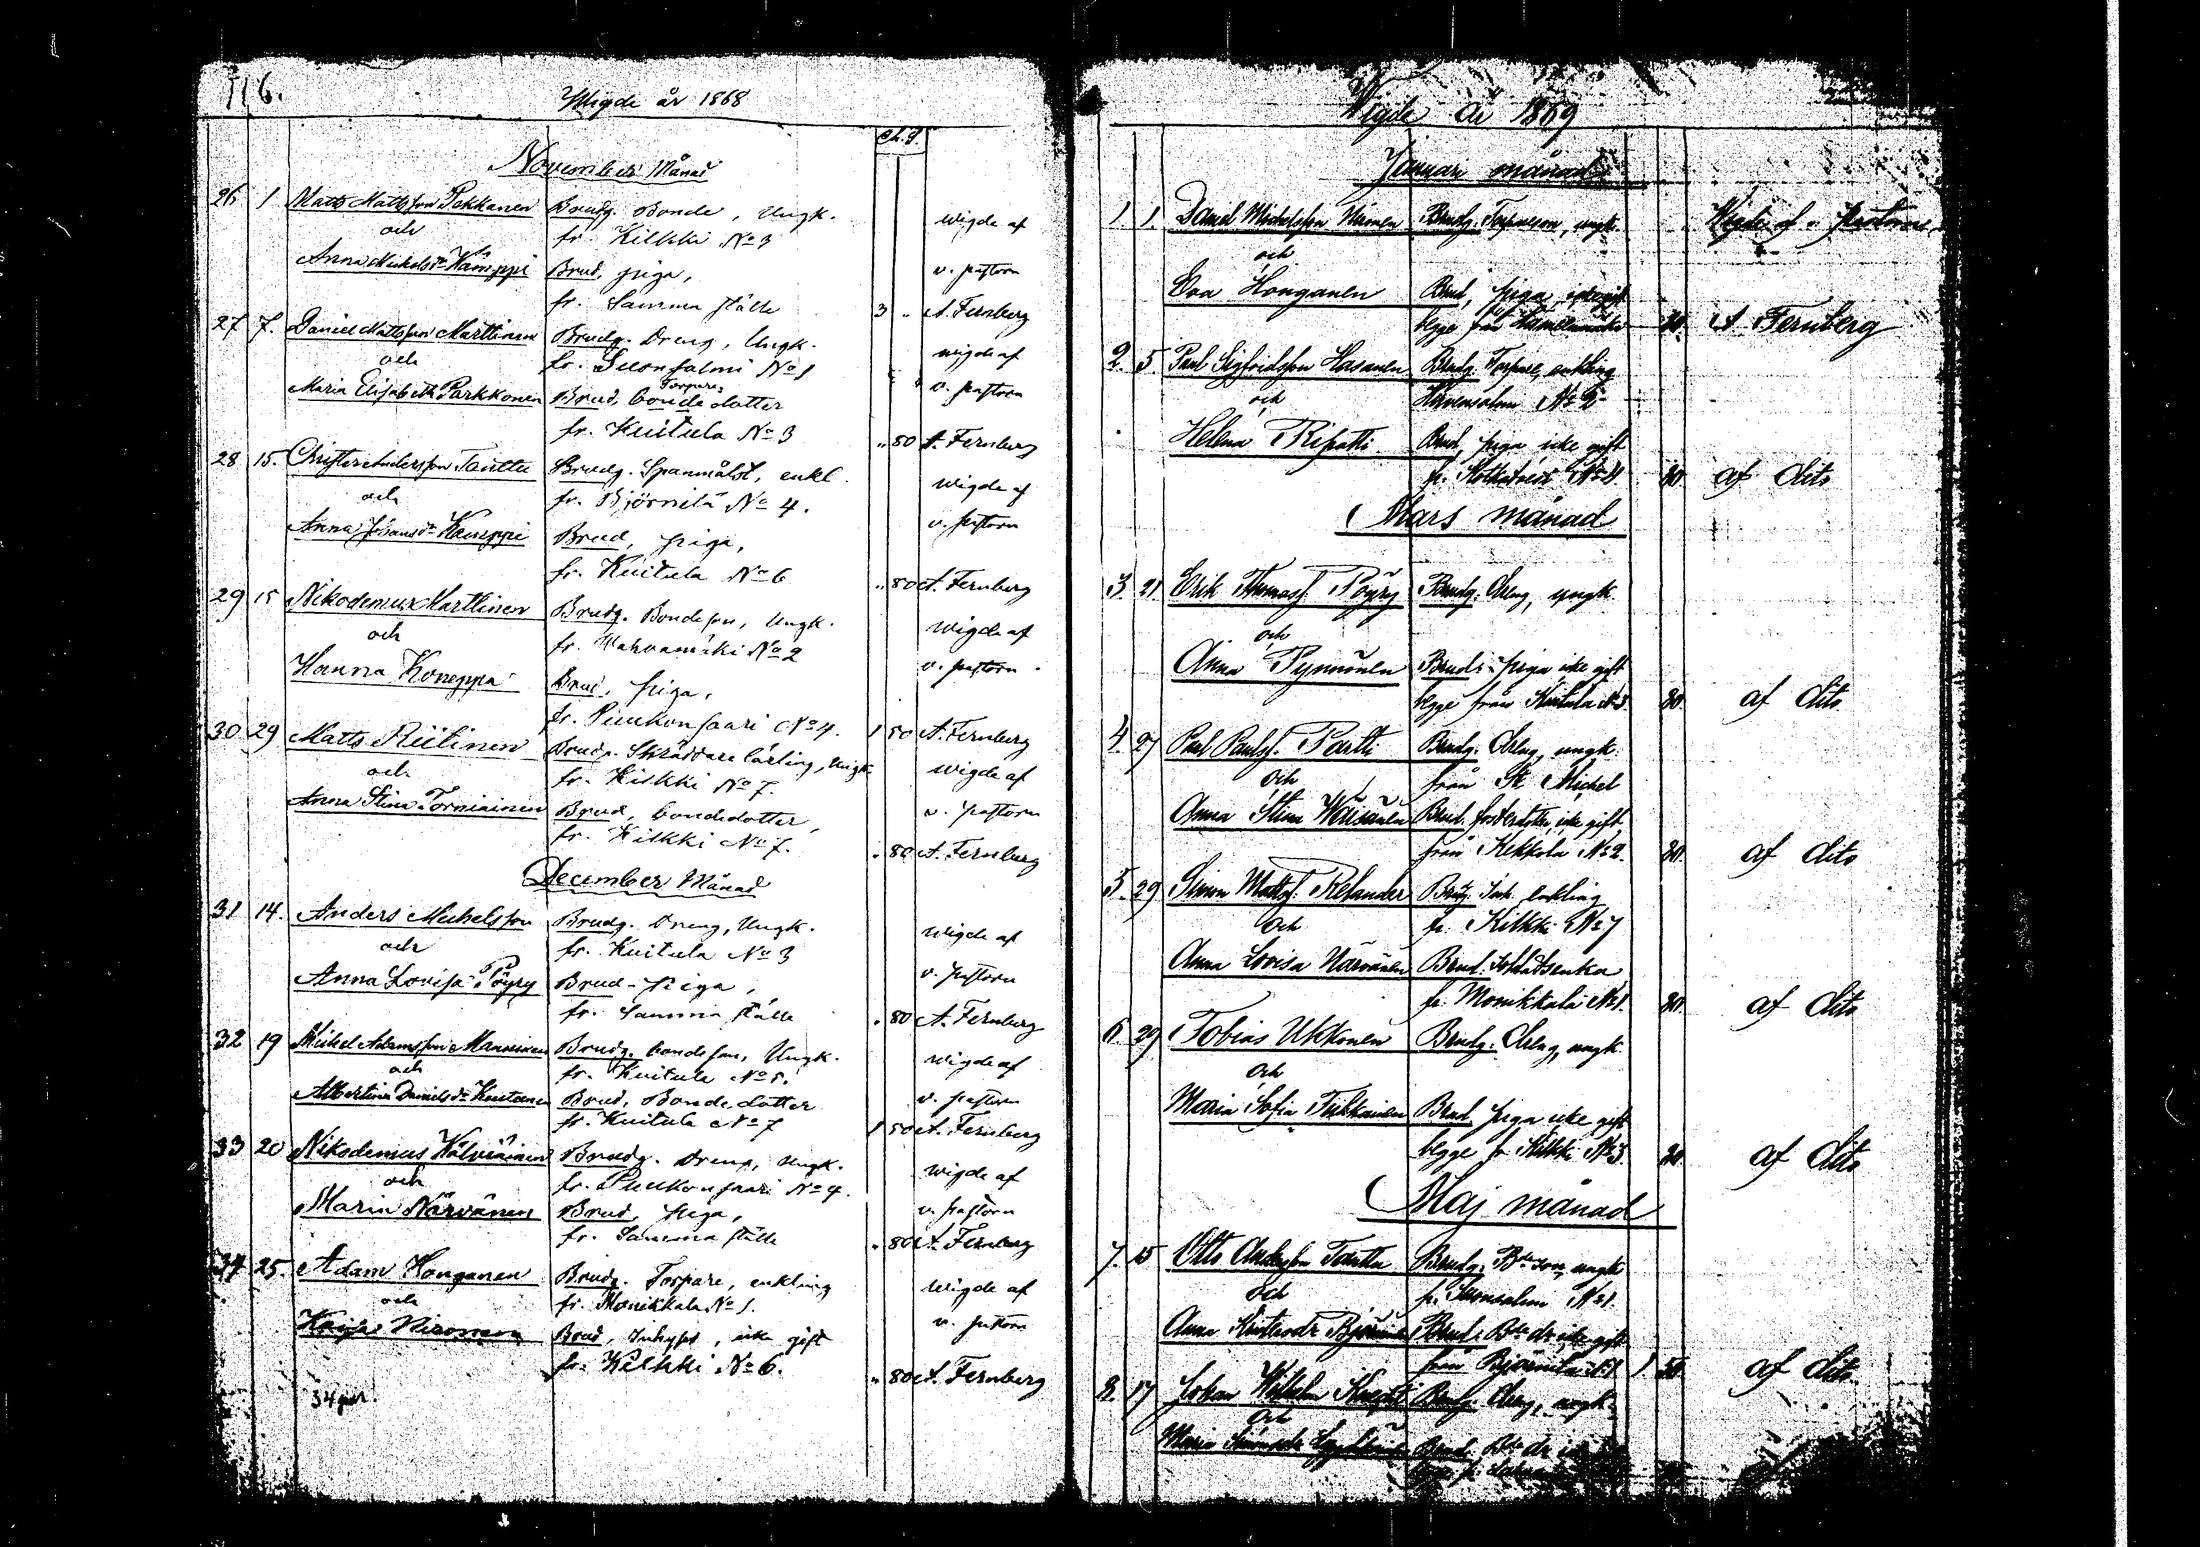 116.
Wigde år 1868
November Månad
26 1 Matts Mattsson Pekkanen Brudg. Bonde, Ungk. wigde af
och fr. Kilkki No 3
Anna Mickelsdr Kämppi Brud, piga, v. pastorn
fr. Samma ställe 3 " A. Fernberg
27 7. Daniel Mattsson Marttinen Brudg. Dreng, Ungk. wigde af
och fr. Suonsalmi No 1
Maria Elisabeth Parkkonen Brud, Torpare dotter v. pastorn
fr. Kuitula No 3 " 80 A. Fernberg
28 15. Christer Andersson Tanttu Brudg. Spanmålst, enkl. wigde af
och fr. Björnilä No 4.
Anna Johansdr Kamppi Brud, piga, v. pastorn
fr. Kuitula No 6 " 80 A. Fernberg
29 15 Nikodemus Marttinen Brudg. Bondeson, Ungk. wigde af
och fr. Harvamäki No 2
Hanna Koneppa Brud, piga, v. pastorn
fr. Puukonsaari No 4. 1 50 A. Fernberg
30 29 Matts Riitinen Brudg. Skräddare lärling, Ungk. wigde af
och fr. Kilkki No 7.
Anna Stina Torniainen Brud, bondedotter, v. pastorn
fr. Kilkki No 7. " 80 A. Fernberg
December Månad
31 14. Anders Mickelsson Brudg. Dreng, Ungk. wigde af
och fr. Kuitula No 3
Anna Lovisa Pöyry Brud - Piga, v. pastorn
fr. Samma ställe " 80 A. Fernberg
32 19 Mickel Adamsson Manninen Brudg. bondeson, Ungk. wigde af
och fr. Kuitula No 5.
Albertina Danielsdr Kuitunen Brud, Bondedotter v. pastorn
fr. Kuitula No 7 1 50 A. Fernberg
33 20 Nikodemus Kälviäinen Brudg. Dreng, Ungk. wigde af
och fr. Puukonsaari No 4.
Maria Närvänen Brud, piga, v. pastorn
fr. Samma ställe " 80 A. Fernberg
34 25. Adam Honganen Brudg. Torpare, enkling wigde af
och fr. Monikkala No 1.
Kaijsa Hironen Brud, Inhyst, icke gift v. pastorn
fr. Kilkki No 6. " 80 A. Fernberg
34 par.
Wigde år 1869
Januari månad
1 1. Daniel Michelsson Brudg. Torpareson, ungk. Wigde af v. pastorn
och
Eva Honganen Brud, piga, icke gift
begge från 80. A Fernberg
2. 5 Paul Sigfridsson Hasanen Brudg. Torpare, enkling
och No 2
Helena Ripatti Brud, piga icke gift
fr. 80. af dito
Mars månad
3. 21 Erik Thomass. Pöyry Brudg. Dreng, ungk.
och
Anna Pynnönen Brud: piga icke gift
begge från Kuitula No 3. 80. af dito
4 27 Paul Paulss. Partti Brudg. Dreng, ungk.
och från St. Michel
Anna Stina Wäisänen Brud. icke gift,
från Kekkola No 2. 80. af dito
5 29 Simon Mattss. Relander Brdg. Inh. enkling
och fr. Kilkki No 7
Anna Lovisa Närvänen Brud. Soldatsenka
fr. Monikkala No 1. 80. af dito
6 29 Tobias Ukkonen Brudg. Dreng, ungk.
och
Maria Sofia Tiihkainen Brud. piga icke gift
begge fr Kilkki No 3 80. af dito
Maj månad
7. 15 Otto Andersson Tanttu Brudg. Bdeson, ungk.
och fr. Suonsalmi No 1.
Anna Brud: Bde dr, icke gift
från Björnilä No 1 50. af dito
8. 17 Johan Wilhelm Brudg. Dreng, ungk.
och
Maria Brud. Bde dr